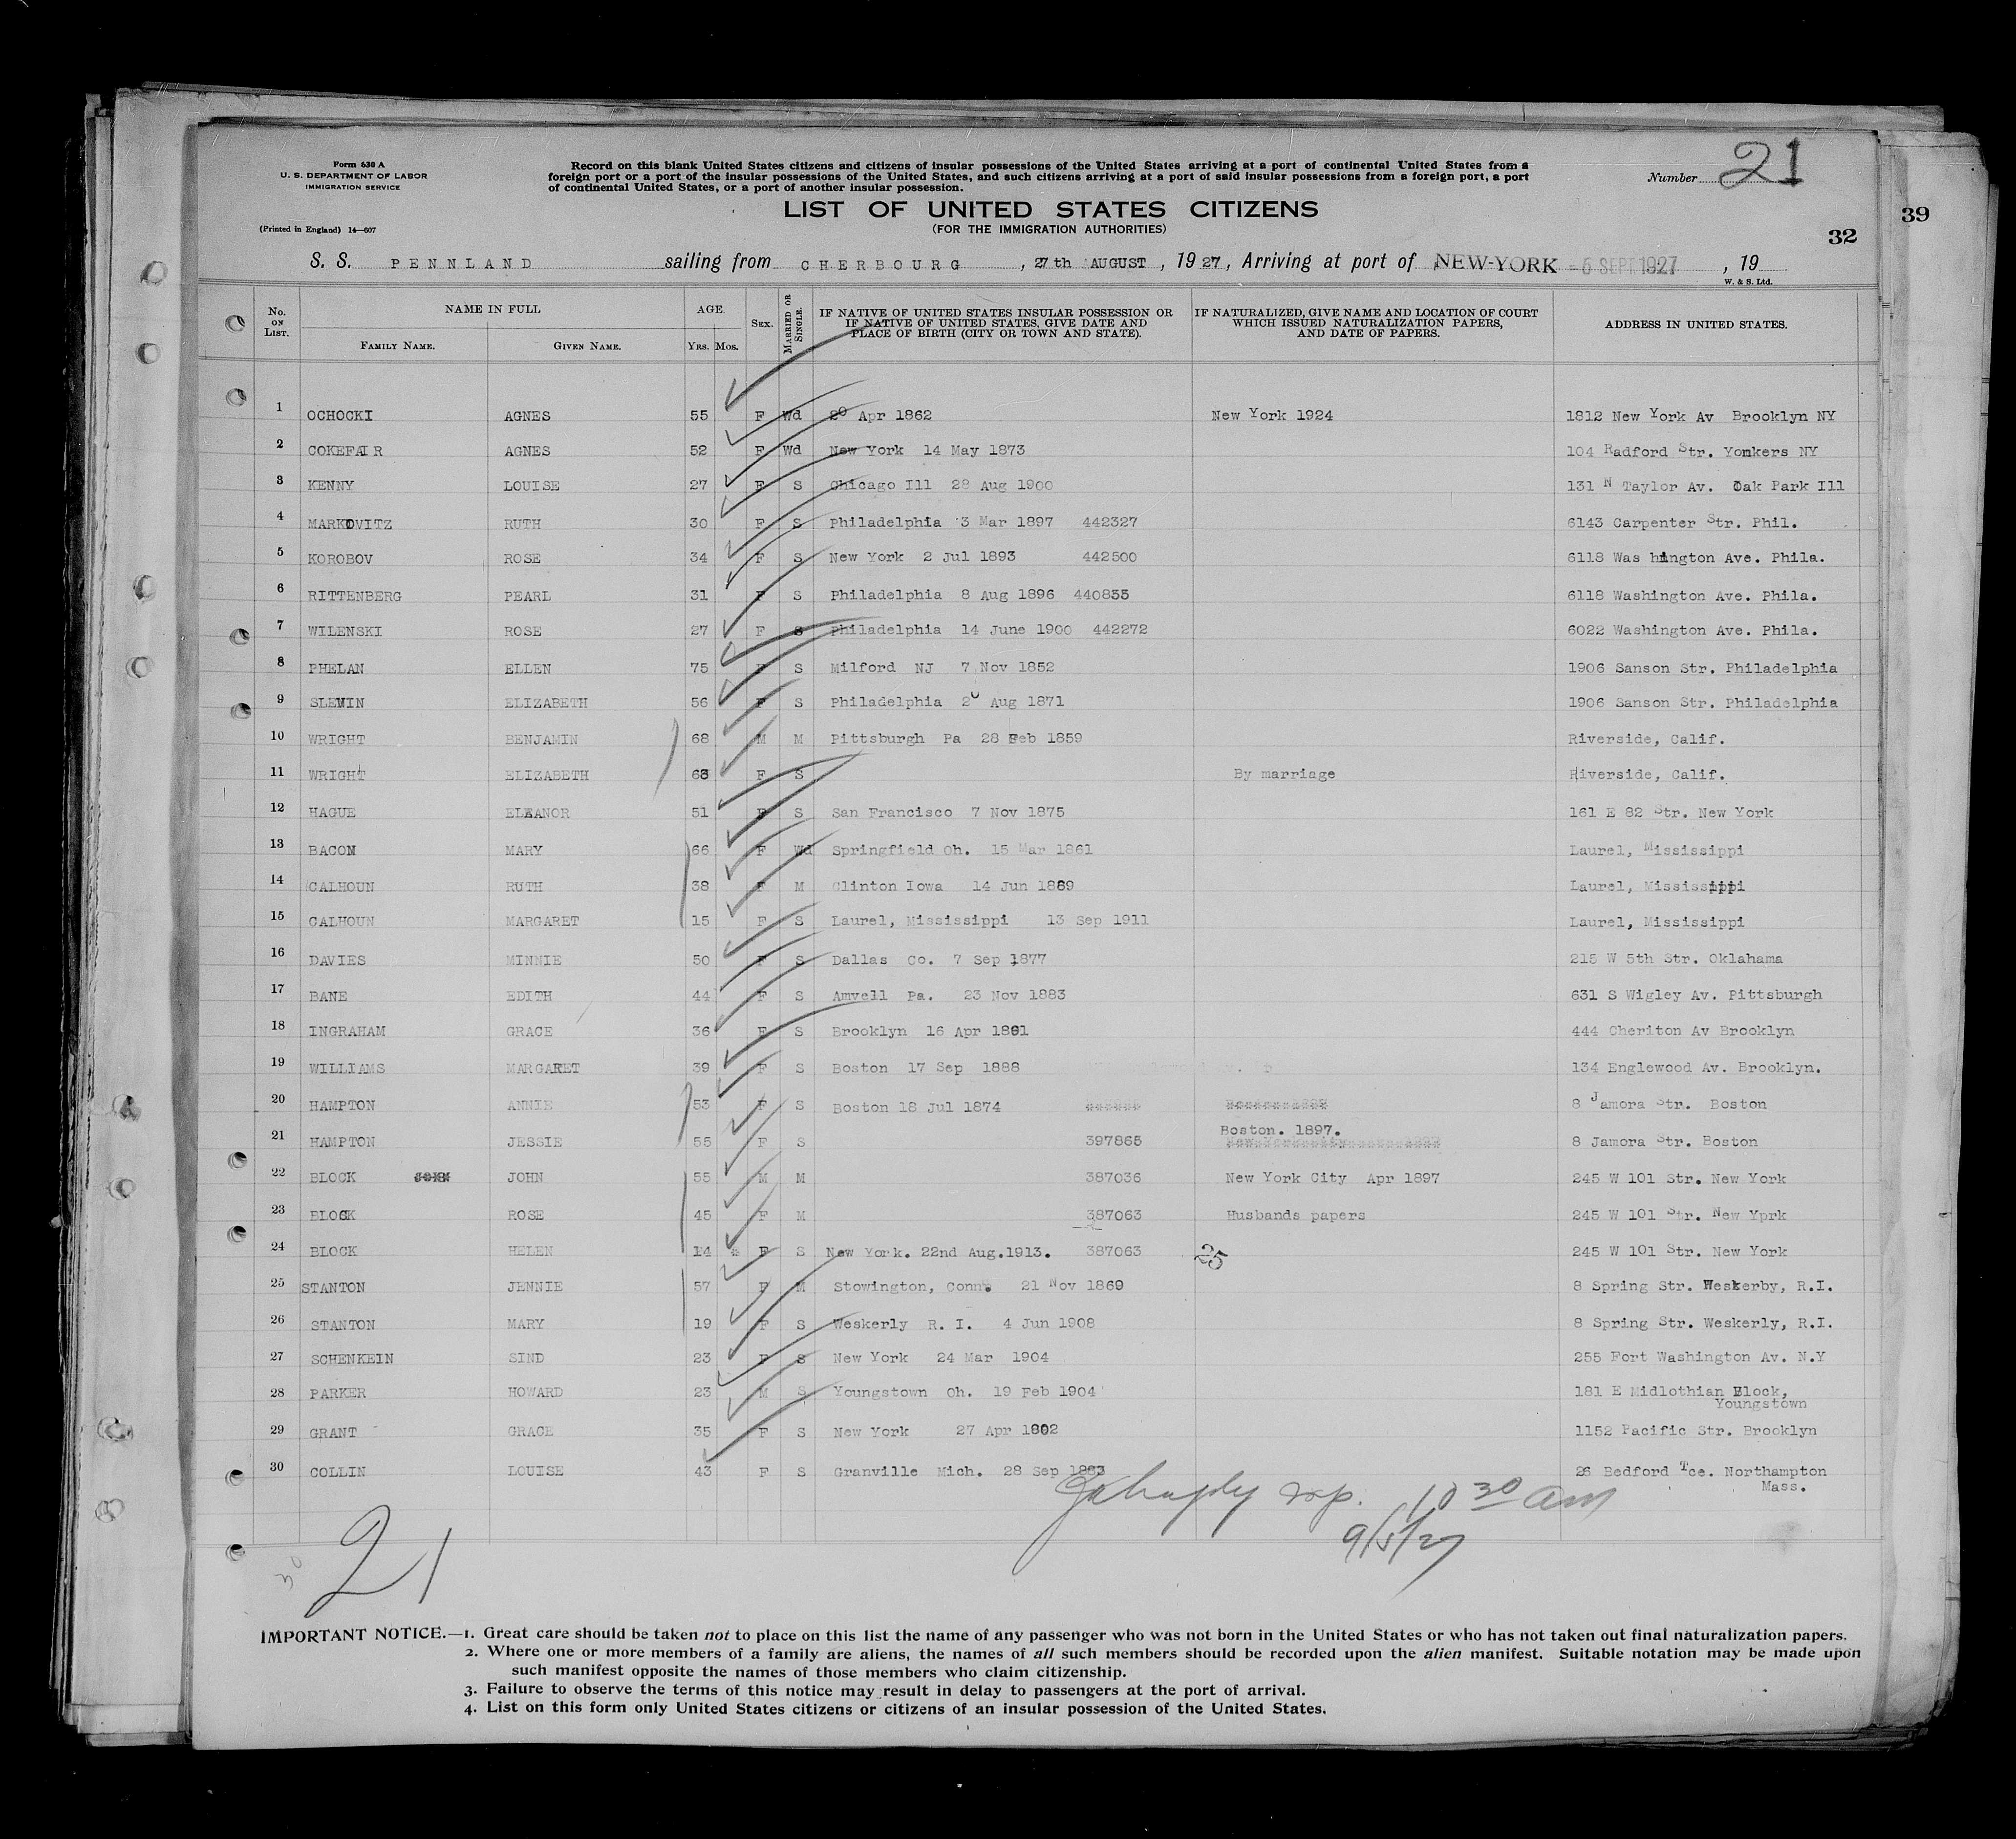 Form 630 A
U. S. DEPARTMENT OF LABOR
IMMIGRATION SERVICE
(Printed in England) 14—607
Record on this blank United States citizens and citizens of insular possessions of the United States arriving at a port of continental United States from a
foreign port or a port of the insular possessions of the United States, and such citizens arriving at a port of said insular possessions from a foreign port, a port
of continental United States, or a port of another insular possession.
Number 21
LIST OF UNITED STATES CITIZENS
(FOR THE IMMIGRATION AUTHORITIES)
32
39
S. S. PENNLAND sailing from CHERBOURG, 27th AUGUST, 1927, Arriving at port of NEW-YORK -5 SEPT 1927, 19
W. & S. Ltd.
No. ON LIST. NAME IN FULL AGE SEX. MARRIED OR SINGLE. IF NATIVE OF UNITED STATES INSULAR POSSESSION OR IF NATIVE OF UNITED STATES, GIVE DATE AND PLACE OF BIRTH (CITY OR TOWN AND STATE). IF NATURALIZED, GIVE NAME AND LOCATION OF COURT WHICH ISSUED NATURALIZATION PAPERS, AND DATE OF PAPERS. ADDRESS IN UNITED STATES.
FAMILY NAME. GIVEN NAME. YRS. MOS.
1 OCHOCKI AGNES 55 F Wd 20 Apr 1862 New York 1924 1812 New York Av Brooklyn NY
2 COKEFAIR AGNES 52 F Wd New York 14 May 1873 104 Radford Str. Yonkers NY
3 KENNY LOUISE 27 F S Chicago Ill 28 Aug 1900 131 N Taylor Av. Oak Park Ill
4 MARKOVITZ RUTH 30 F S Philadelphia 3 Mar 1897 442327 6143 Carpenter Str. Phil.
5 KOROBOV ROSE 34 F S New York 2 Jul 1893 442500 6118 Was hington Ave. Phila.
6 RITTENBERG PEARL 31 F S Philadelphia 8 Aug 1896 440835 6118 Washington Ave. Phila.
7 WILENSKI ROSE 27 F S Philadelphia 14 June 1900 442272 6022 Washington Ave. Phila.
8 PHELAN ELLEN 75 F S Milford NJ 7 Nov 1852 1906 Sanson Str. Philadelphia
9 SLEVIN ELIZABETH 56 F S Philadelphia 20 Aug 1871 1906 Sanson Str. Philadelphia
10 WRIGHT BENJAMIN 68 M M Pittsburgh Pa 28 Feb 1859 Riverside, Calif.
11 WRIGHT ELIZABETH 63 F S By marriage Riverside, Calif.
12 HAGUE ELEANOR 51 F S San Francisco 7 Nov 1875 161 E 82 Str. New York
13 BACON MARY 66 F Wd Springfield Oh. 15 Mar 1861 Laurel, Mississippi
14 CALHOUN RUTH 38 F M Clinton Iowa 14 Jun 1889 Laurel, Mississippi
15 CALHOUN MARGARET 15 F S Laurel, Mississippi 13 Sep 1911 Laurel, Mississippi
16 DAVIES MINNIE 50 F S Dallas Co. 7 Sep 1877 215 W 5th Str. Oklahama
17 BANE EDITH 44 F S Amvell Pa. 23 Nov 1883 631 S Wigley Av. Pittsburgh
18 INGRAHAM GRACE 36 F S Brooklyn 16 Apr 1891 444 Cheriton Av Brooklyn
19 WILLIAMS MARGARET 39 F S Boston 17 Sep 1888 134 Englewood Av. Brooklyn.
20 HAMPTON ANNIE 53 F S Boston 18 Jul 1874 8 Jamora Str. Boston
21 HAMPTON JESSIE 55 F S 397865 Boston. 1897. 8 Jamora Str. Boston
22 BLOCK JOHN 55 M M 387036 New York City Apr 1897 245 W 101 Str. New York
23 BLOCK ROSE 45 F M 387063 Husbands papers 245 W 101 Str. New Yprk
24 BLOCK HELEN 14 F S New York. 22nd Aug.1913. 387063 25 245 W 101 Str. New York
25 STANTON JENNIE 57 F M Stowington, Conn. 21 Nov 1869 8 Spring Str. Weskerby, R.I.
26 STANTON MARY 19 F S Weskerly R. I. 4 Jun 1908 8 Spring Str. Weskerly, R.I.
27 SCHENKEIN SIND 23 F S New York 24 Mar 1904 255 Fort Washington Av. N.Y
28 PARKER HOWARD 23 M S Youngstown Oh. 19 Feb 1904 181 E Midlothian Block,
Youngstown
29 GRANT GRACE 35 F S New York 27 Apr 1892 1152 Pacific Str. Brooklyn
30 COLLIN LOUISE 43 F S Granville Mich. 28 Sep 1883 26 Bedford Tce. Northampton
Mass.
10 30 am
9/5/27
30
21
IMPORTANT NOTICE.—1. Great care should be taken not to place on this list the name of any passenger who was not born in the United States or who has not taken out final naturalization papers.
2. Where one or more members of a family are aliens, the names of all such members should be recorded upon the alien manifest. Suitable notation may be made upon
such manifest opposite the names of those members who claim citizenship.
3. Failure to observe the terms of this notice may result in delay to passengers at the port of arrival.
4. List on this form only United States citizens or citizens of an insular possession of the United States.